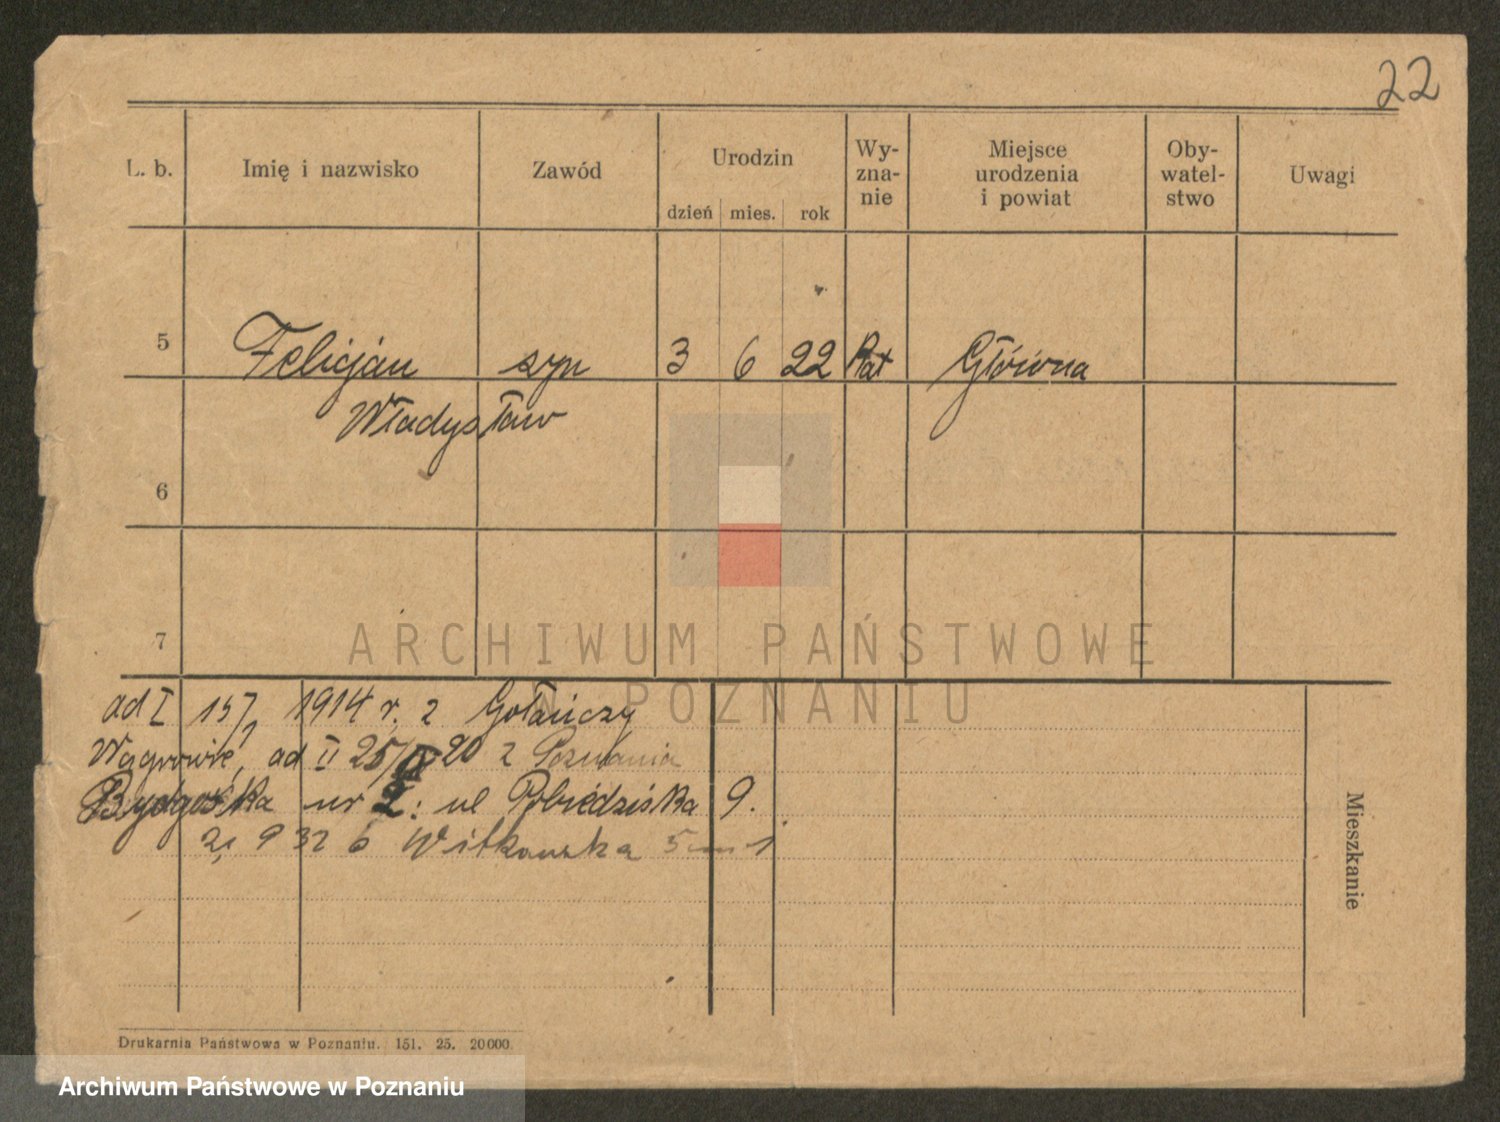 22
L. b. Imię i nazwisko Zawód Urodzin Wy-zna-nie Miejsce urodzenia i powiat Oby-watel-stwo Uwagi
dzień mies. rok
5 Felicjan syn 3 6 22 kat Główna
Władysław
6
7
ARCHIWUM PAŃSTWOWE
W POZNANIU
ad I 15/7 1914 r. z Gołańczy
ad II 25/ 20 z Poznania
Bydgoska nr 2: ul Pobiedziska 9.
2, 9 32 6 Witkowska 5
Mieszkanie
Drukarnia Państwowa w Poznaniu. 151. 25. 20000.
Archiwum Państwowe w Poznaniu